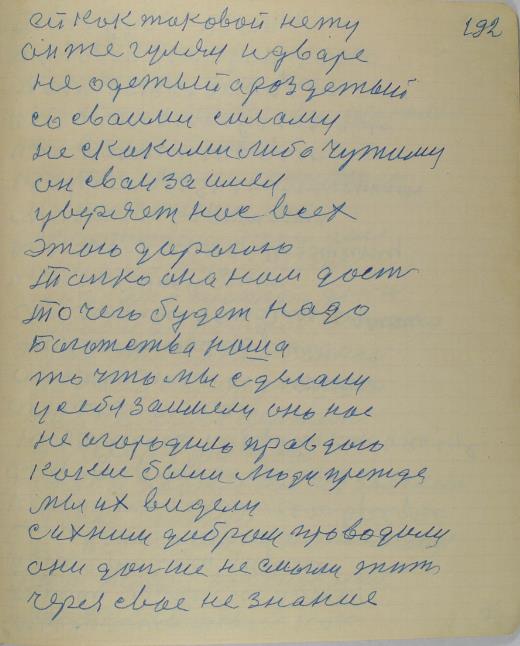 192
ей как таковой нету
он же гулял и дваре
не одетый а роздетый
со сваими силами
не скакими либа чужими
он сваи заимел
уверяет нас всех
этою дарогою
Толко она нам даст
то чего будет надо
Богатства наша
то что мы сделали
у себя заимели оно нас
не огородило правдаю
какие были люди прежде
мы их видели
сихним добром проводили
они долше не смогли жить
через свое не знание